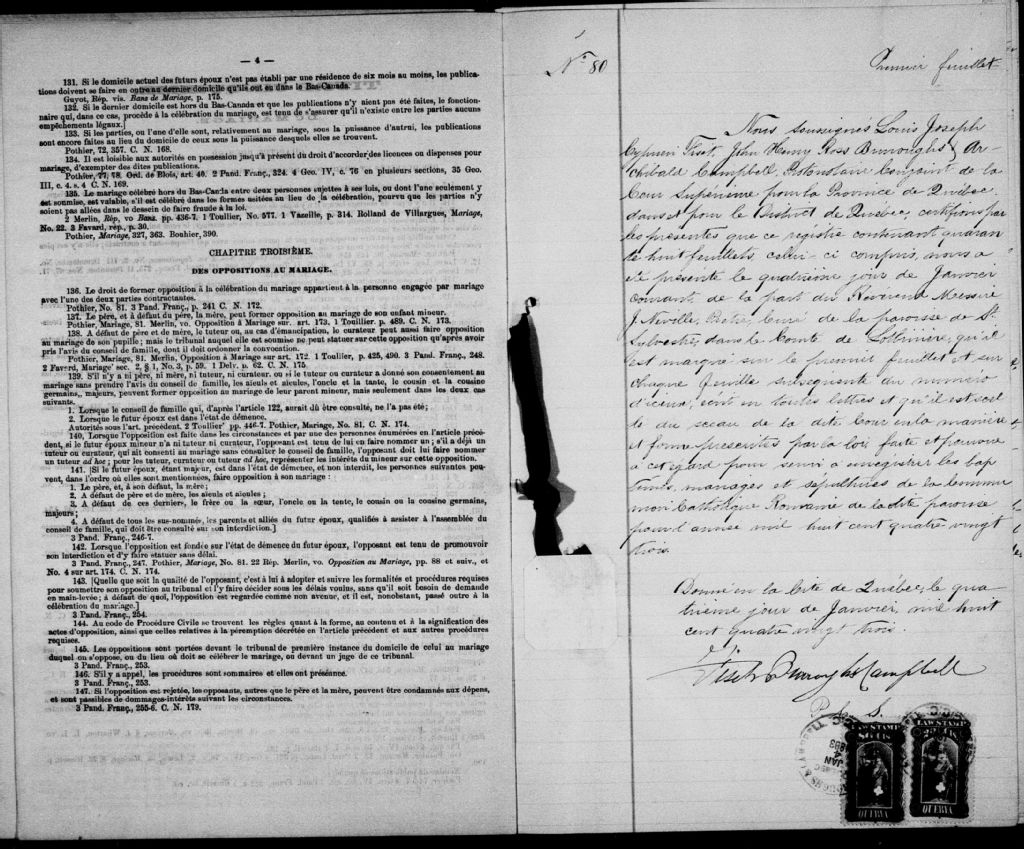 — 4 —
131. Si le domicile actuel des futurs époux n'est pas établi par une résidence de six mois au moins, les publica-
tions doivent se faire en outre au dernier domicile qu'ils ont eu dans le Bas-Canada.
Guyot, Rép. vis. Bans de Mariage, p. 175.
132. Si le dernier domicile est hors du Bas-Canada et que les publications n'y aient pas été faites, le fonction-
naire qui, dans ce cas, procède à la célébration du mariage, est tenu de s'assurer qu'il n'existe entre les parties aucuns
empêchements légaux.]
133. Si les parties, ou l'une d'elle sont, relativement au mariage, sous la puissance d'autrui, les publications
sont encore faites au lieu du domicile de ceux sous la puissance desquels elles se trouvent.
Pothier, 72, 357. C. N. 168.
134. Il est loisible aux autorités en possession jusqu'à présent du droit d'accorder des licences ou dispenses pour
mariage, d'exempter des dites publications.
Pothier, 77, 78. Ord. de Blois, art. 40. 2 Pand. Franç., 324. 4 Geo. IV, c. 76 en plusieurs sections, 35 Geo.
III, c. 4. s. 4 C. N. 169.
135. Le mariage célébré hors du Bas-Canada entre deux personnes sujettes à ses lois, ou dont l'une seulement y
est soumise, est valable, s'il est célébré dans les formes usitées au lieu de la célébration, pourvu que les parties n'y
soient pas allées dans le dessein de faire fraude à la loi.
2 Merlin, Rép, vo Bans. pp. 436-7. 1 Toullier, No. 577. 1 Vazeille, p. 314. Rolland de Villargues, Mariage,
No. 22. 3 Favard, rép., p. 30.
Pothier, Mariage, 327, 363. Bouhier, 390.
CHAPITRE TROISIÈME.
DES OPPOSITIONS AU MARIAGE.
136. Le droit de former opposition à la célébration du mariage appartient à la personne engagée par mariage
avec l'une des deux parties contractantes.
Pothier, No. 81. 3 Pand. Franç., p. 241 C. N. 172.
137. Le père, et à défaut du père, la mère, peut former opposition au mariage de son enfant mineur.
Pothier, Mariage, 81. Merlin, vo. Opposition à Mariage sur. art. 173. 1 Touillier. p. 489. C. N. 173.
138. A défaut de père et de mère, le tuteur ou, au cas d'émancipation, le curateur peut aussi faire opposition
au mariage de son pupille ; mais le tribunal auquel elle est soumise ne peut statuer sur cette opposition qu'après avoir
pris l'avis du conseil de famille, dont il doit ordonner la convocation.
Pothier, Mariage, 81. Merlin, Opposition à Mariage sur art. 172. 1 Toullier, p. 425, 490. 3 Pand. Franç., 248.
2 Favard, Mariage sec. 2, § 1, No. 3, p. 59. 1 Delv. p. 62. C. N. 175.
139. S'il n'y a ni père, ni mère, ni tuteur, ni curateur, ou si le tuteur ou curateur a donné son consentement au
mariage sans prendre l'avis du conseil de famille, les aïeuls et aïeules, l'oncle et la tante, le cousin et la cousine
germains, majeurs, peuvent former opposition au mariage de leur parent mineur, mais seulement dans les deux cas
suivants.
1. Lorsque le conseil de famille qui, d'après l'article 122, aurait dû être consulté, ne l'a pas été ;
2. Lorsque le futur époux est dans l'état de démence.
Autorités sous l'art. précédent. 2 Toullier pp. 446-7. Pothier, Mariage, No. 81. C. N. 174.
140. Lorsque l'opposition est faite dans les circonstances et par une des personnes énumérées en l'article précé-
dent, si le futur époux mineur n'a ni tuteur ni curateur, l'opposant est tenu de lui en faire nommer un ; s'il a déjà un
tuteur ou curateur, qui ait consenti au mariage sans consulter le conseil de famille, l'opposant doit lui faire nommer
un tuteur ad hoc ; pour les tuteur, curateur ou tuteur ad hoc, représenter les intérêts du mineur sur cette opposition.
141. [Si le futur époux, étant majeur, est dans l'état de démence, et non interdit, les personnes suivantes peu-
vent, dans l'ordre où elles sont mentionnées, faire opposition à son mariage :
1. Le père, et, à son défaut, la mère ;
2. A défaut de père et de mère, les aïeuls et aïeules ;
3. A défaut de ces dernier, le frère ou la sœur, l'oncle ou la tante, le cousin ou la cousine germains,
majeurs ;
4. A défaut de tous les sus-nommés, les parents et alliés du futur époux, qualifiés à assister à l'assemblée du
conseil de famille, qui doit être consulté sur son interdiction.]
3 Pand. Franç., 246-7.
142. Lorsque l'opposition est fondée sur l'état de démence du futur époux, l'opposant est tenu de promouvoir
son interdiction et d'y faire statuer sans délai.
3 Pand. Franç., 247. Pothier, Mariage, No. 81. 22 Rép. Merlin, vo. Opposition au Mariage, pp. 88 et suiv., et
No. 4 sur art. 174. C. N. 174.
143. [Quelque soit la qualité de l'opposant, c'est à lui à adopter et suivre les formalités et procédures requises
pour soumettre son opposition au tribunal et l'y faire décider sous les délais voulus, sans qu'il soit besoin de demande
en main-levée ; à défaut de quoi, l'opposition est regardée comme non avenue, et il est, nonobstant, passé outre à la
célébration du mariage.]
3 Pand. Franç., 254.
144. Au code de Procédure Civile se trouvent les règles quant à la forme, au contenu et à la signification des
actes d'opposition, ainsi que celles relatives à la péremption décrétée en l'article précédent et aux autres procédures
requises.
145. Les oppositions sont portées devant le tribunal de première instance du domicile de celui au mariage
duquel on s'oppose, ou du lieu où doit se célébrer le mariage, ou devant un juge de ce tribunal.
3 Pand. Franç., 253.
146. S'il y a appel, les procédures sont sommaires et elles ont préséance.
3 Pand. Franç., 253.
147. Si l'opposition est rejetée, les opposants, autres que le père et la mère, peuvent être condamnés aux dépens,
et sont passibles de dommages-intérêts suivant les circonstances.
3 Pand. Franç., 255-6. C. N. 179.
No 80
Premier feuillet
Nous soussignés Louis Joseph
Cyprien Fiset, John Henry Ross Burroughs & Ar-
chibald Campbell, Protonotaire Conjoint de la
Cour Supérieure pour la Province de Québec
dans et pour le District de Québec, certifions par
les présentes que ce registre contenant quaran
te huit feuillets, celui-ci compris, nous a
été présenté le quatrième jour de Janvier
Courant de la part du Révérend Messire
J. Neville, Prêtre, Curé de la paroisse de St
Sylvestre, dans le Comté de Lotbinière, qu'il
est marqué sur le premier feuillet et sur
chaque feuille subséquente du numéro
d'icelui, écrit en toutes lettres et qu'il est scel
lé du sceau de la dite Cour en la manière
et forme prescrites par la loi faite et pourvue
à cet égard pour servir à enregistrer les bap
têmes, mariages et sépultures de la Commu
nion Catholique Romaine de la dite paroisse
pour l'année mil huit cent quatre vingt
trois.
Donné en la Cité de Québec, le qua
trième jour de Janvier, mil huit
cent quatre vingt trois.
Fiset Burroughs Campbell
P. S. S.
LAW STAMP
QUEBEC
LAW STAMP
QUEBEC
JAN
4
1883